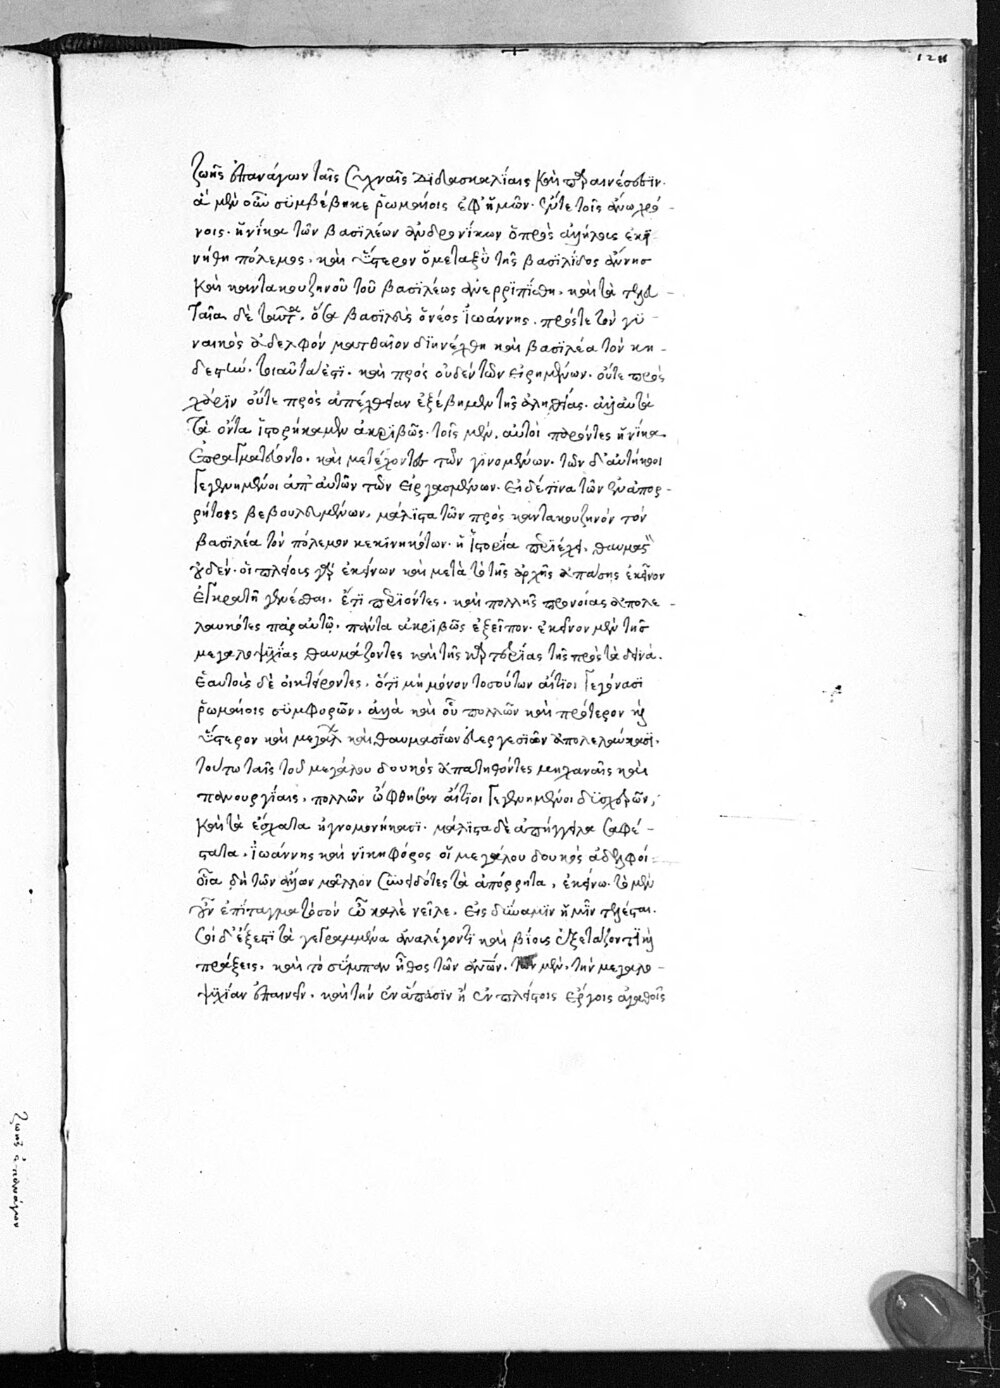 12
ζωῆς ἐπανάγων ταῖς συχναῖς διδασκαλίαις καὶ παραινέσεσιν.
ἃ μὲν οὖν συμβέβηκε ῥωμαίοις ἐφ' ἡμῶν· ἔν τε τοῖς ἄνω χρό-
νοις· ἡνίκα τῶν βασιλέων ἀνδρονίκων ὁ πρὸς ἀλλήλους ἐκι-
νήθη πόλεμος, καὶ ὕστερον ὁ μεταξὺ τῆς βασιλίδος ἄννης
καὶ καντακουζηνοῦ τοῦ βασιλέως ἀνερριπίσθη, καὶ τὰ τελευ-
ταῖα δὲ ταῦτα, ὅτε βασιλεὺς ὁ νέος ἰωάννης, πρός τε τὸν γυ-
ναικὸς ἀδελφὸν ματθαῖον διηνέχθη καὶ βασιλέα τὸν κη-
δεστὴν, τοιαῦτά ἐστι· καὶ πρὸς οὐδὲν τῶν εἰρημένων, οὔτε πρὸς
χάριν οὔτε πρὸς ἀπέχθειαν ἐξέβημεν τῆς ἀληθείας· ἀλλ' αὐτὰ
τὰ ὄντα ἱστορήκαμεν ἀκριβῶς· τοῖς μὲν, αὐτοὶ παρόντες ἡνίκα
ἐπραγματεύοντο, καὶ μετέχοντες τῶν γινομένων· τῶν δ' αὐτήκοοι
γεγενημένοι ἀπ' αὐτῶν τῶν εἰργασμένων· εἰ δέ τινα τῶν ἐν ἀπορ-
ρήτοις βεβουλευμένων, μάλιστα τῶν πρὸς καντακουζηνὸν τὸν
βασιλέα τὸν πόλεμον κεκινηκότων· ἡ ἱστορία περιέχει, θαυμαστὸν
οὐδέν· οἱ πλείους γὰρ ἐκείνων καὶ μετὰ τὸ τῆς ἀρχῆς ἁπάσης ἐκεῖνον
ἐγκρατῆ γενέσθαι, ἔτι περιόντες, καὶ πολλῆς προνοίας ἀπολε-
λαυκότες παρ' αὐτῷ, πάντα ἀκριβῶς ἐξεῖπον· ἐκεῖνον μὲν τῆς
μεγαλοψυχίας θαυμάζοντες καὶ τῆς καρτερίας τῆς πρὸς τὰ δεινά.
ἑαυτοὺς δὲ οἰκτείροντες, ὅτι μὴ μόνον τοσούτων αἴτιοι γεγόνασι
ῥωμαίοις συμφορῶν, ἀλλὰ καὶ οὗ πολλῶν καὶ πρότερον καὶ
ὕστερον καὶ μεγάλων καὶ θαυμασίων εὐεργεσιῶν ἀπολελαύκασι.
τούτω ταῖς τοῦ μεγάλου δουκὸς ἀπατηθέντες μηχαναῖς καὶ
πανουργίαις, πολλῶν ὤφθησαν αἴτιοι γεγενημένοι δυσχερῶν,
καὶ τὰ ἔσχατα ἠγνωμονήκασι· μάλιστα δὲ ἀπήγγειλα σαφέ-
στατα, ἰωάννης καὶ νικηφόρος οἱ μεγάλου δουκὸς ἀδελφοὶ
οἷα δὴ τῶν ἄλλων μᾶλλον συνειδότες τὰ ἀπόρρητα, ἐκείνω· τὸ μὲν
οὖν ἐπίταγμα τὸ σὸν ὦ καλὲ νεῖλε, εἰς δύναμιν ἡμῖν τετέλεσται.
σοὶ δ' ἔξεστι τὰ γεγραμμένα ἀναλέγοντι καὶ βίους ἐξετάζοντι καὶ
πράξεις, καὶ τὸ σύμπαν ἦθος τῶν ἀνδρῶν, τῶν μὲν, τὴν μεγαλο-
ψυχίαν ἐπαινεῖν, καὶ τὴν ἐν ἅπασιν ἢ ἐν πλείστοις ἔργοις ἀγαθοῖς
ζωῆς ἐπανάγων